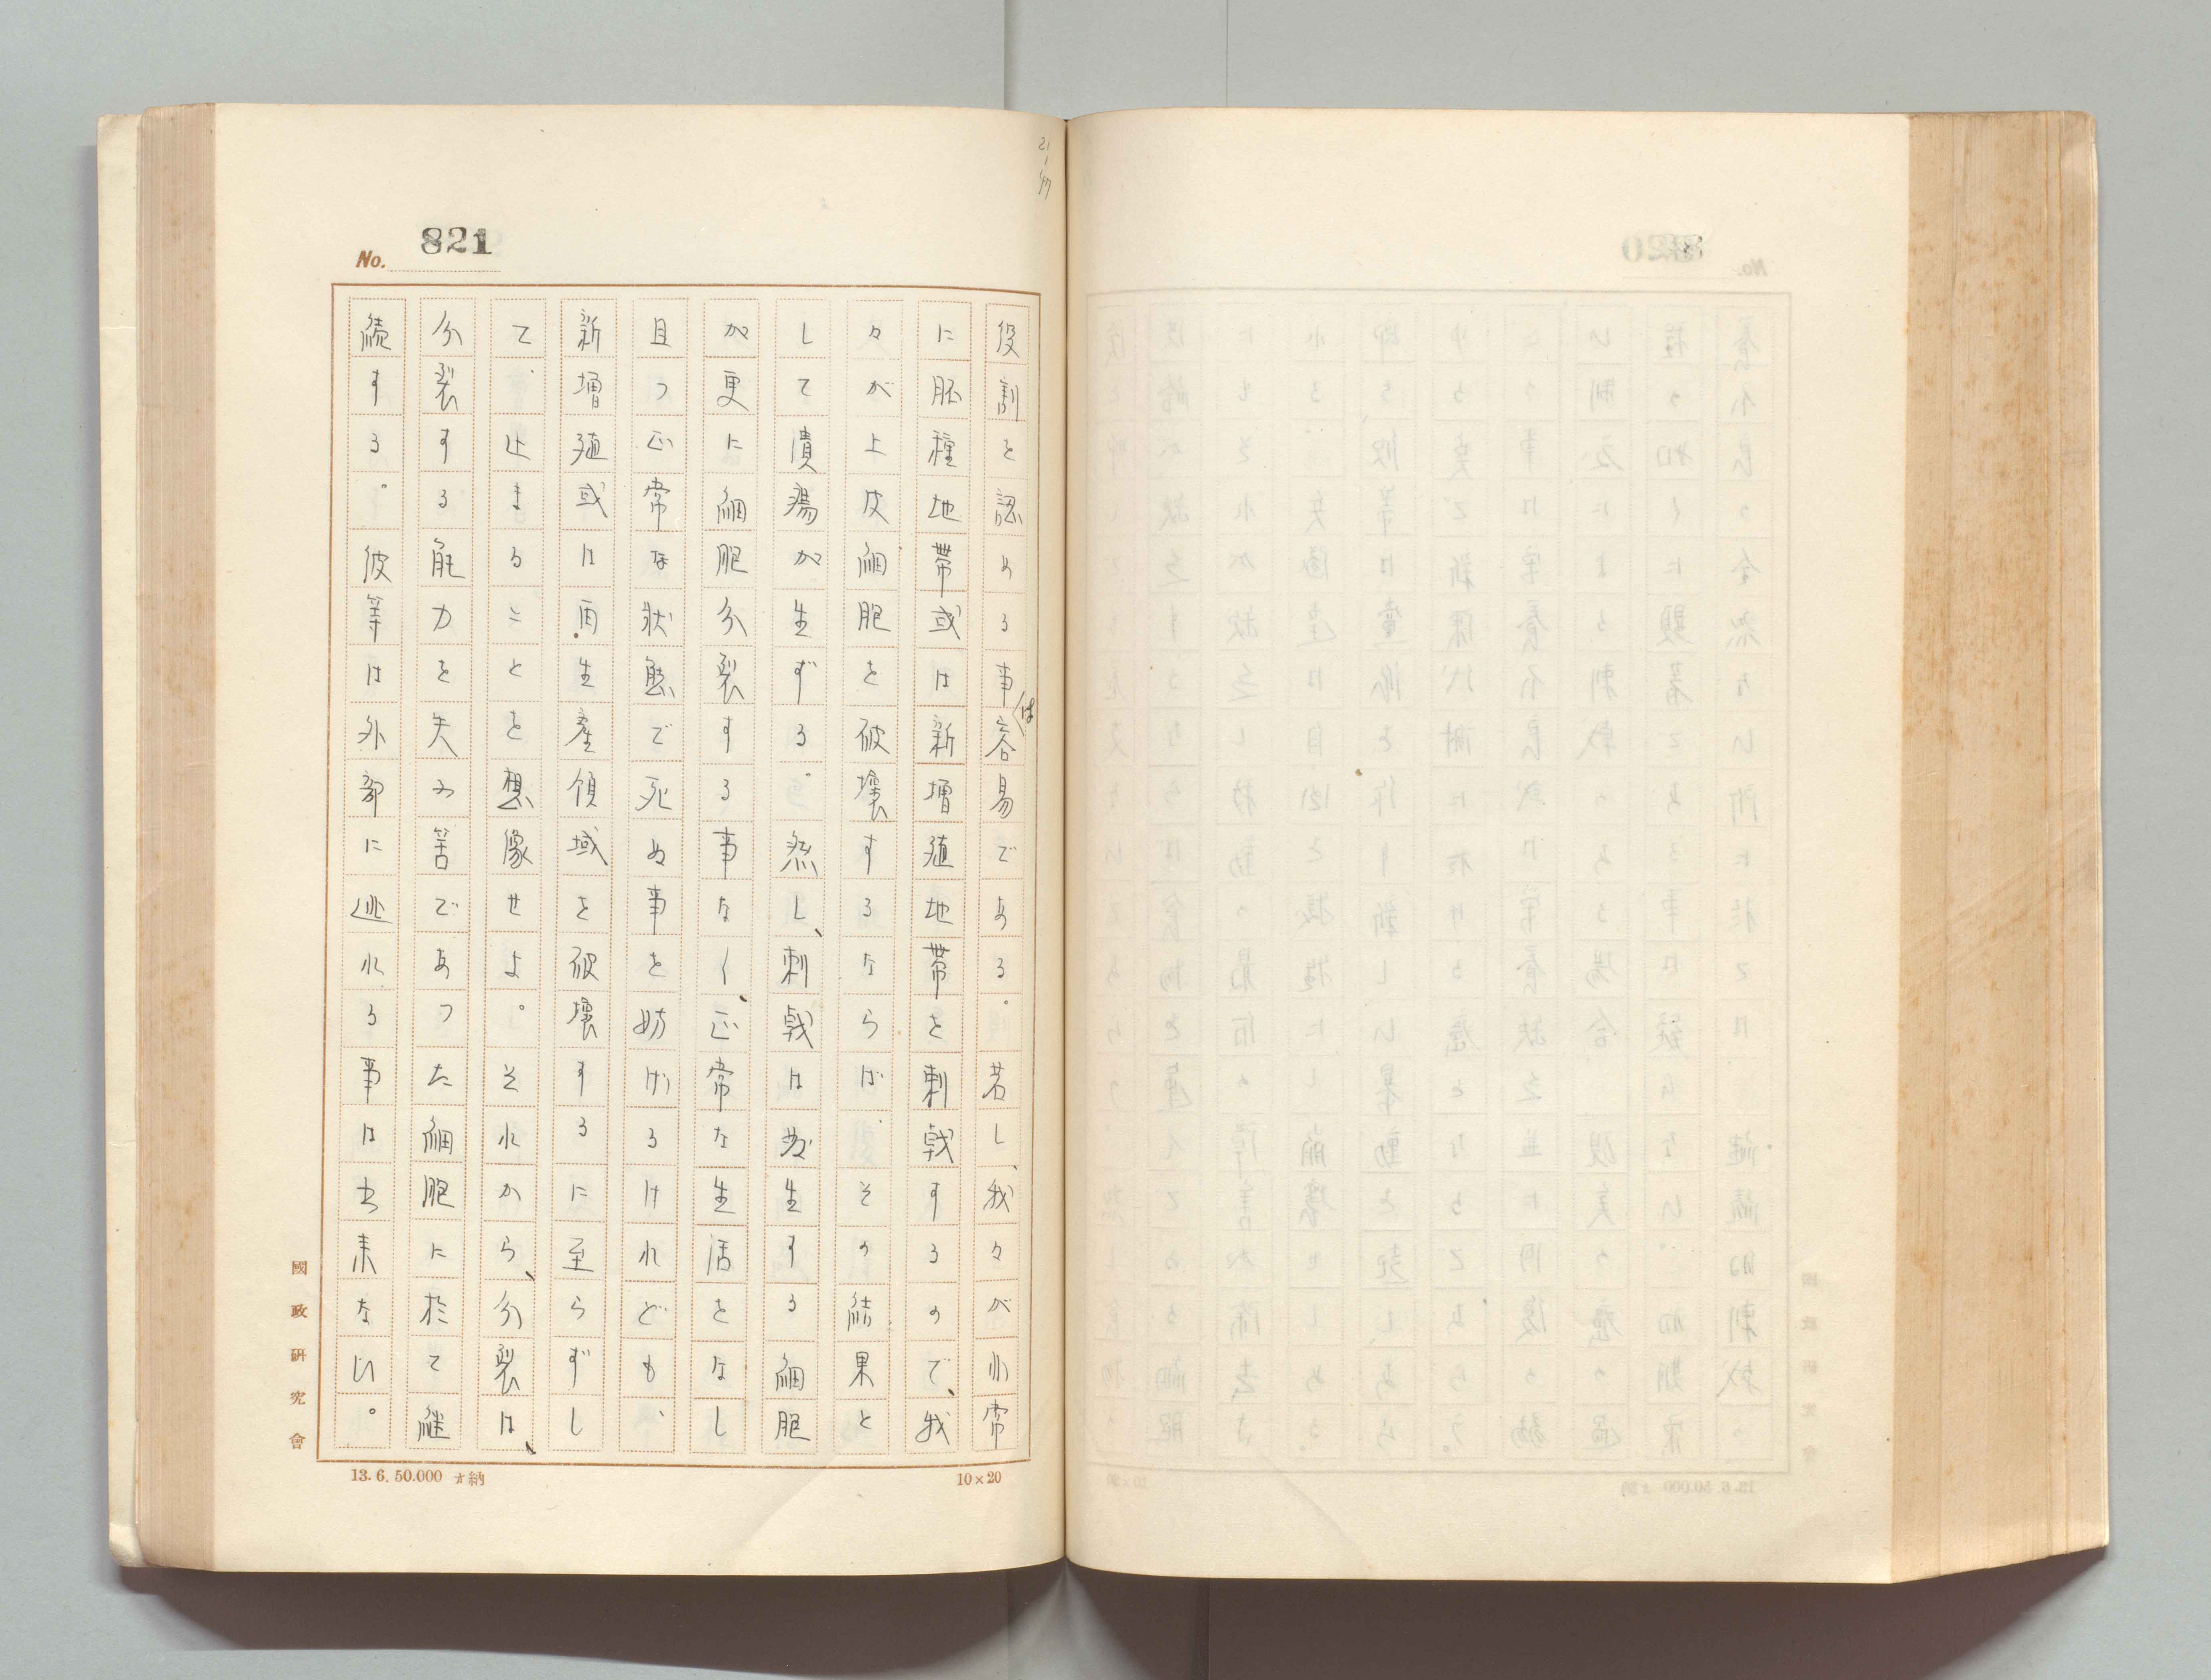 21
1
47
No. 821
役割を認める事は容易である。若し、我々が小常
に胚種地帯或は新増殖地帯を刺戟するので、我
々が上皮細胞を破壊するならば、その結果と
して潰瘍が生ずる。然し、刺戟は発生する細胞
が更に細胞分裂する事なく、正常な生活をなし
且つ正常な状態で死ぬ事を妨げるけれども、
新増殖或は再生産領域を破壊するに至らずし
て、止まることを想像せよ。それから、分裂は、
分裂する能力を失ふ筈であつた細胞に於て継
続する。彼等は外部に逃れる事は出来ない。
國政研究會
13.6.50.000 納
10×20